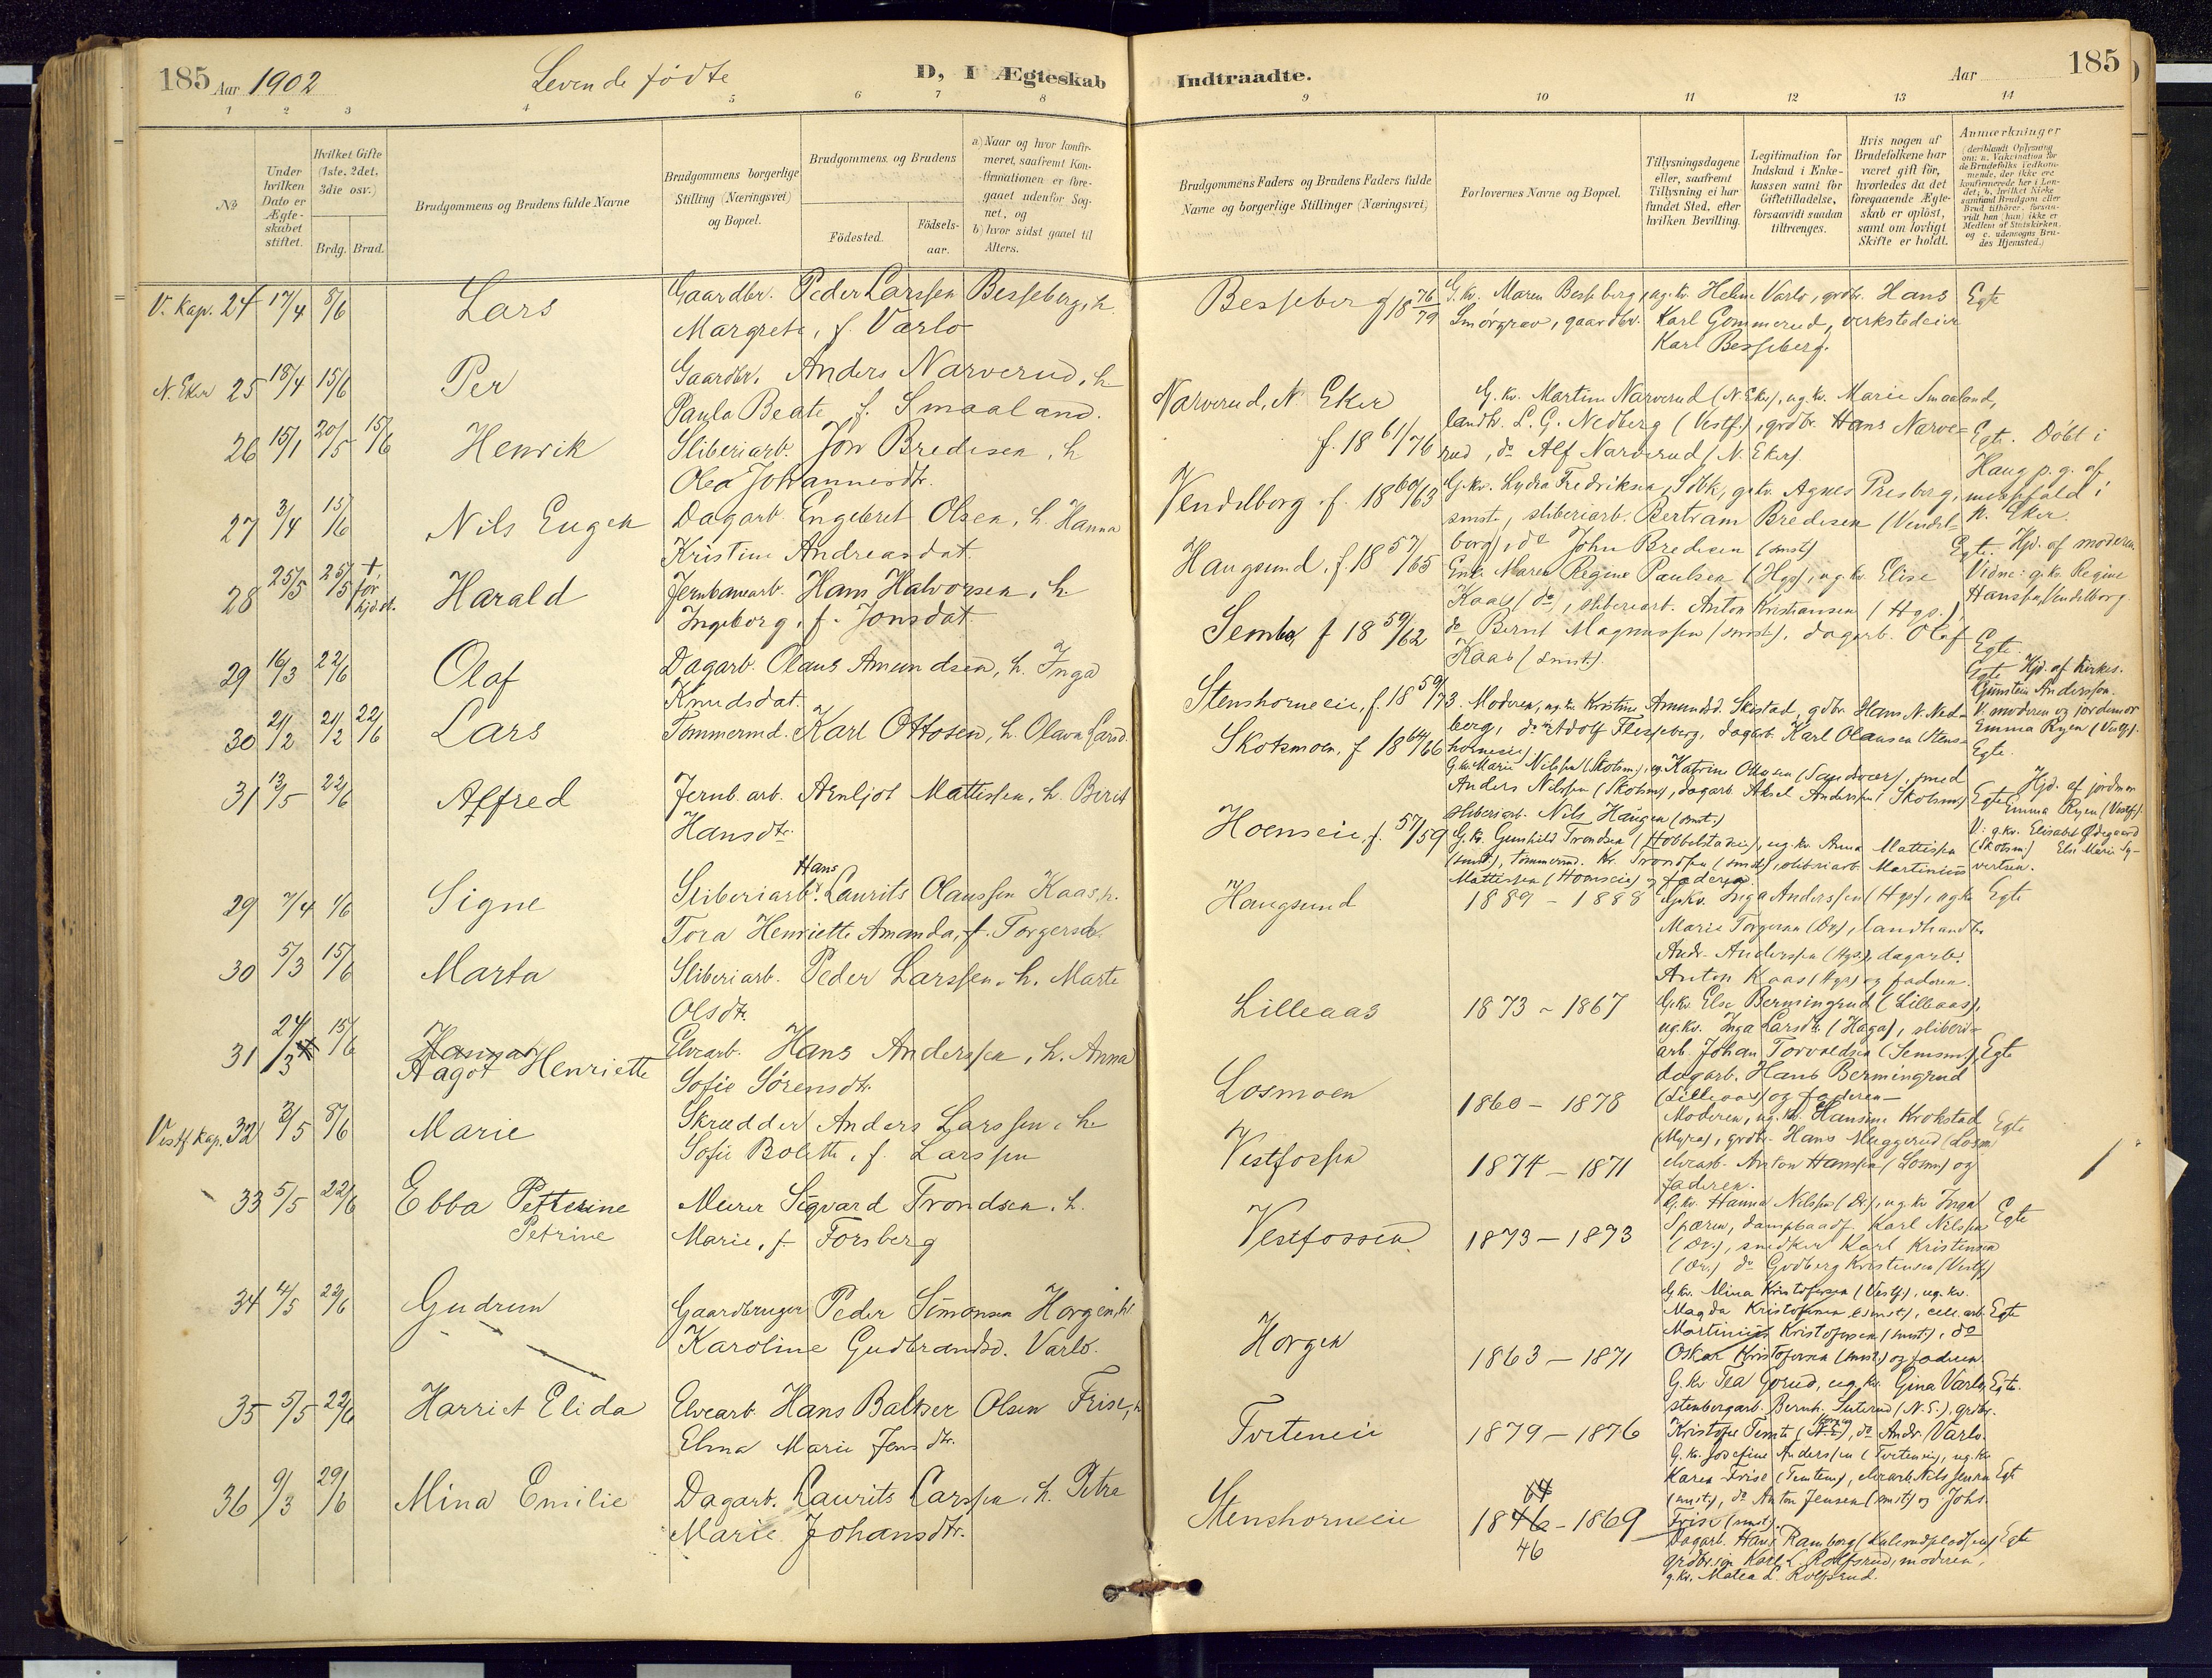 185 Aar 1902 Levende fødte D, I Ægteskab
Indtraadte. Aar 185
1 2 3 4 5 6 7 8
9 10 11 12 13 14
No
Under hvilken Dato er Ægteskabet stiftet.
Hvilket Gifte (1ste, 2det, 3die osv.)
Brdg. Brud.
Brudgommens og Brudens fulde Navne
Brudgommens borgerlige Stilling (Næringsvei) og Bopæl.
Brudgommens og Brudens
Födested.
Födsels-aar.
a) Naar og hvor konfirmeret, saafremt Konfirmationen er foregaaet udenfor Sognet, og
b) hvor sidst gaaet til Alters.
Brudgommens Faders og Brudens Faders fulde Navne og borgerlige Stillinger (Næringsvei)
Forlovernes Navne og Bopæl.
Tillysningsdagene eller, saafremt Tillysning ei har fundet Sted, efter hvilken Bevilling.
Legitimation for Indskud i Enkekassen samt for Giftetilladelse, forsaavidt saadan tiltrænges.
Hvis nogen af Brudefolkene har været gift før, hvorledes da det foregaaende Ægteskab er oplöst, samt om lovligt Skifte er holdt.
Anmærkninger
V. Kap. 24 17/4 8/6 Lars Gaardbr. Peder Larssen Besseberg, h.
Margrete, f. Varlo
Besseberg 18 76/79 G. kv. Maren Besseberg, ug. kv. Helene Varlo, grdbr. Hans Egte
Smørgrav, gaardbr. Karl Gommerud, verkstedeier
Karl Besseberg.
N. Eker 25 18/4 15/6 Per Gaardbr. Anders Narverud, h
Paula Beate f. Smaaland.
Narverud, N. Eker f. 18 61/76
G. kv. Martine Narverud (N. Eker), ug. kv. Marie Smaaland,
landh. L. G. Nedberg (Vestf.), grdbr. Hans Narve-
rud, do Alf Narverud (N. Eker).
Egte. Døbt i
Haug p. g. af
26 15/1 20/5 15/6 Henrik Sliberiarb. Jon Bredesen, h
Olea Johannesdtr.
Vendelborg f. 18 60/63 G. kv. Lydia Fredriksen,
smst., sliberiarb. Bertram Bredesen (Vendel-
borg), do John Bredesen (smst)
Egte. Hjd. af moderen.
Vidne: g. kv. Regine
Hanssen, Vendelborg.
27 3/4 15/6 Nils Eugen Dagarb. Engebret Olsen, h. Hanna
Kristine Andreasdat.
Haugsund, f. 18 57/65
Enke Maren Regine Paulsen (Hgs), ug. kv. Elise
Kaas (do), sliberiarb. Anton Kristiansen (Hgs.)
do Bernt Magnussen (smst.), dagarb. Olaf
Kaas (smst).
Egte.
28 25/5 25/5 † før hjd.st. Harald Jernbanearb. Hans Halvorsen, h.
Ingeborg, f. Jonsdat.
Sembs f 18 59/62
Egte Hjd. af kirkes.
Gunstein Anderssen.
V. moderen og jordemor
Emma Ryen (Vestf).
29 16/3 22/6 Olaf Dagarb. Olaus Amundsen, h. Inga
Knudsdat.
Stenshorneeie, f. 18 59/73. Moderen, ug. kv. Kristine Amundsd. Skistad, gdbr. Hans N. Ned-
berg, do Adolf Flesseberg, dagarb. Karl Olausen (Stens-
horneeie)
Egte.
30 21/2 21/2 22/6 Lars Tømmermd. Karl Ottosen, h. Olava Larsd.
Skotsmoen, f 18 64/66
G. kv. Marie Nilssen (Skotsm.), ug. Katrine Ottosen (Sandsvær), smed
Anders Nilssen (Skotsm), dagarb. Aksel Anderssen (Skotsm)
sliberiarb. Nils Haugen (smst.)
Egte Hjd. af jordmor
Emma Ryen (Vestf).
V: g. kv. Elisabet Ødegaard
(Skotsm) Else Marie Sy-
vertsen.
31 13/5 22/6 Alfred Jernb. arb. Arnljot Mattissen, h. Berit
Hansdtr.
Hoenseie, f. 57/59 G. kv. Gunhild Trondsen (Hobbelstadeie), ug. kv. Anna Mattissen
(smst), tømmermd. Kr. Trondsen (smst), sliberiarb. Martinius
Mattissen (Hoenseie) og faderen.
29 7/4 1/6 Signe Sliberiarb. Hans Laurits Olaussen Kaas, h.
Tora Henriette Amanda, f. Torgersdtr.
Haugsund 1889 - 1888 G. kv. Inga Anderssen (Hgs), ug. kv Egte
Marie Torgersen (Dr), landhandler
Andr. Anderssen (Hgs), dagarb.
Anton Kaas (Hgs) og faderen.
30 5/3 15/6 Marta Sliberiarb. Peder Larssen, h. Marte
Olsdtr.
Lilleaas 1873 - 1867 G. kv. Else Bermingrud (Lilleaas),
ug. kv. Inga Larsdtr. (Haga), sliberi-
arb. Johan Torvaldsen (Semsm), Egte
dagarb. Hans Bermingrud
(Lilleaas) og faderen
31 24/3 15/6 Aagot Henriette Elvearb. Hans Anderssen, h. Anna
Sofie Sørensdtr.
Losmoen 1860 - 1878 Moderen, ug. kv. Hansine Krokstad Egte
(Myra), grdbr. Hans Muggerud (Losm)
elvearb. Anton Hanssen (Losm) og
faderen.
Vestf Kap. 32 3/5 8/6 Marie Skrædder Anders Larssen, h
Sofie Bolette, f. Larssen
Vestfossen 1874 - 1871 G. kv. Hanna Nilssen (Dr.), ug. kv Inga Egte
Spæren, dampbaadf. Karl Nilssen
(Dr.), snedker Karl Kristensen
(Dr.) do Godberg Kristensen (Vestf)
33 5/5 22/6 Ebba Petterine Murer Sigvard Trondsen, h.
Petrine Marie, f. Forsberg
Vestfossen 1873 - 1873
G. kv. Mina Kristofersen (Vestf.), ug. kv.
Magda Kristofersen (smst.), cell. arb. Egte
Martinius Kristofersen (smst.), do
Oskar Kristofersen (smst.) og faderen.
34 4/5 22/6 Gudrun Gaardbruger Peder Simonsen Horgen, h.
Karoline Gudbrandsd. Varlo.
Horgen 1863 - 1871
G. kv Tea Gorud, ug. kv. Gina Varlo, Egte.
stenbergarb. Bernh. Suterud (N. E.), grdbr.
Kristofer Temte, do Andr. Varlo.
35 5/5 22/6 Harriet Elida Elvearb. Hans Baltser Olsen Frise, h
Elma Marie Jensdtr.
Tveteneie 1879 - 1876
G. kv. Josefine Anderssen (Tveteneie), ug. kv
Karen Frise, elvearb. Nils Jensen Egte
(smst.), do Anton Jensen (smst) og Johs.
Frise (smst).
36 9/3 29/6 Mina Emilie Dagarb. Laurits Larssen, h. Petra
Marie Johansdtr.
Stenshorneeie 1846 - 1869
64
46
Dagarb. Hans Ramborg Egte
grdbr. Karl L. Rolfsrud, moderen,
g. kv. Matea L. Rolfsrud.